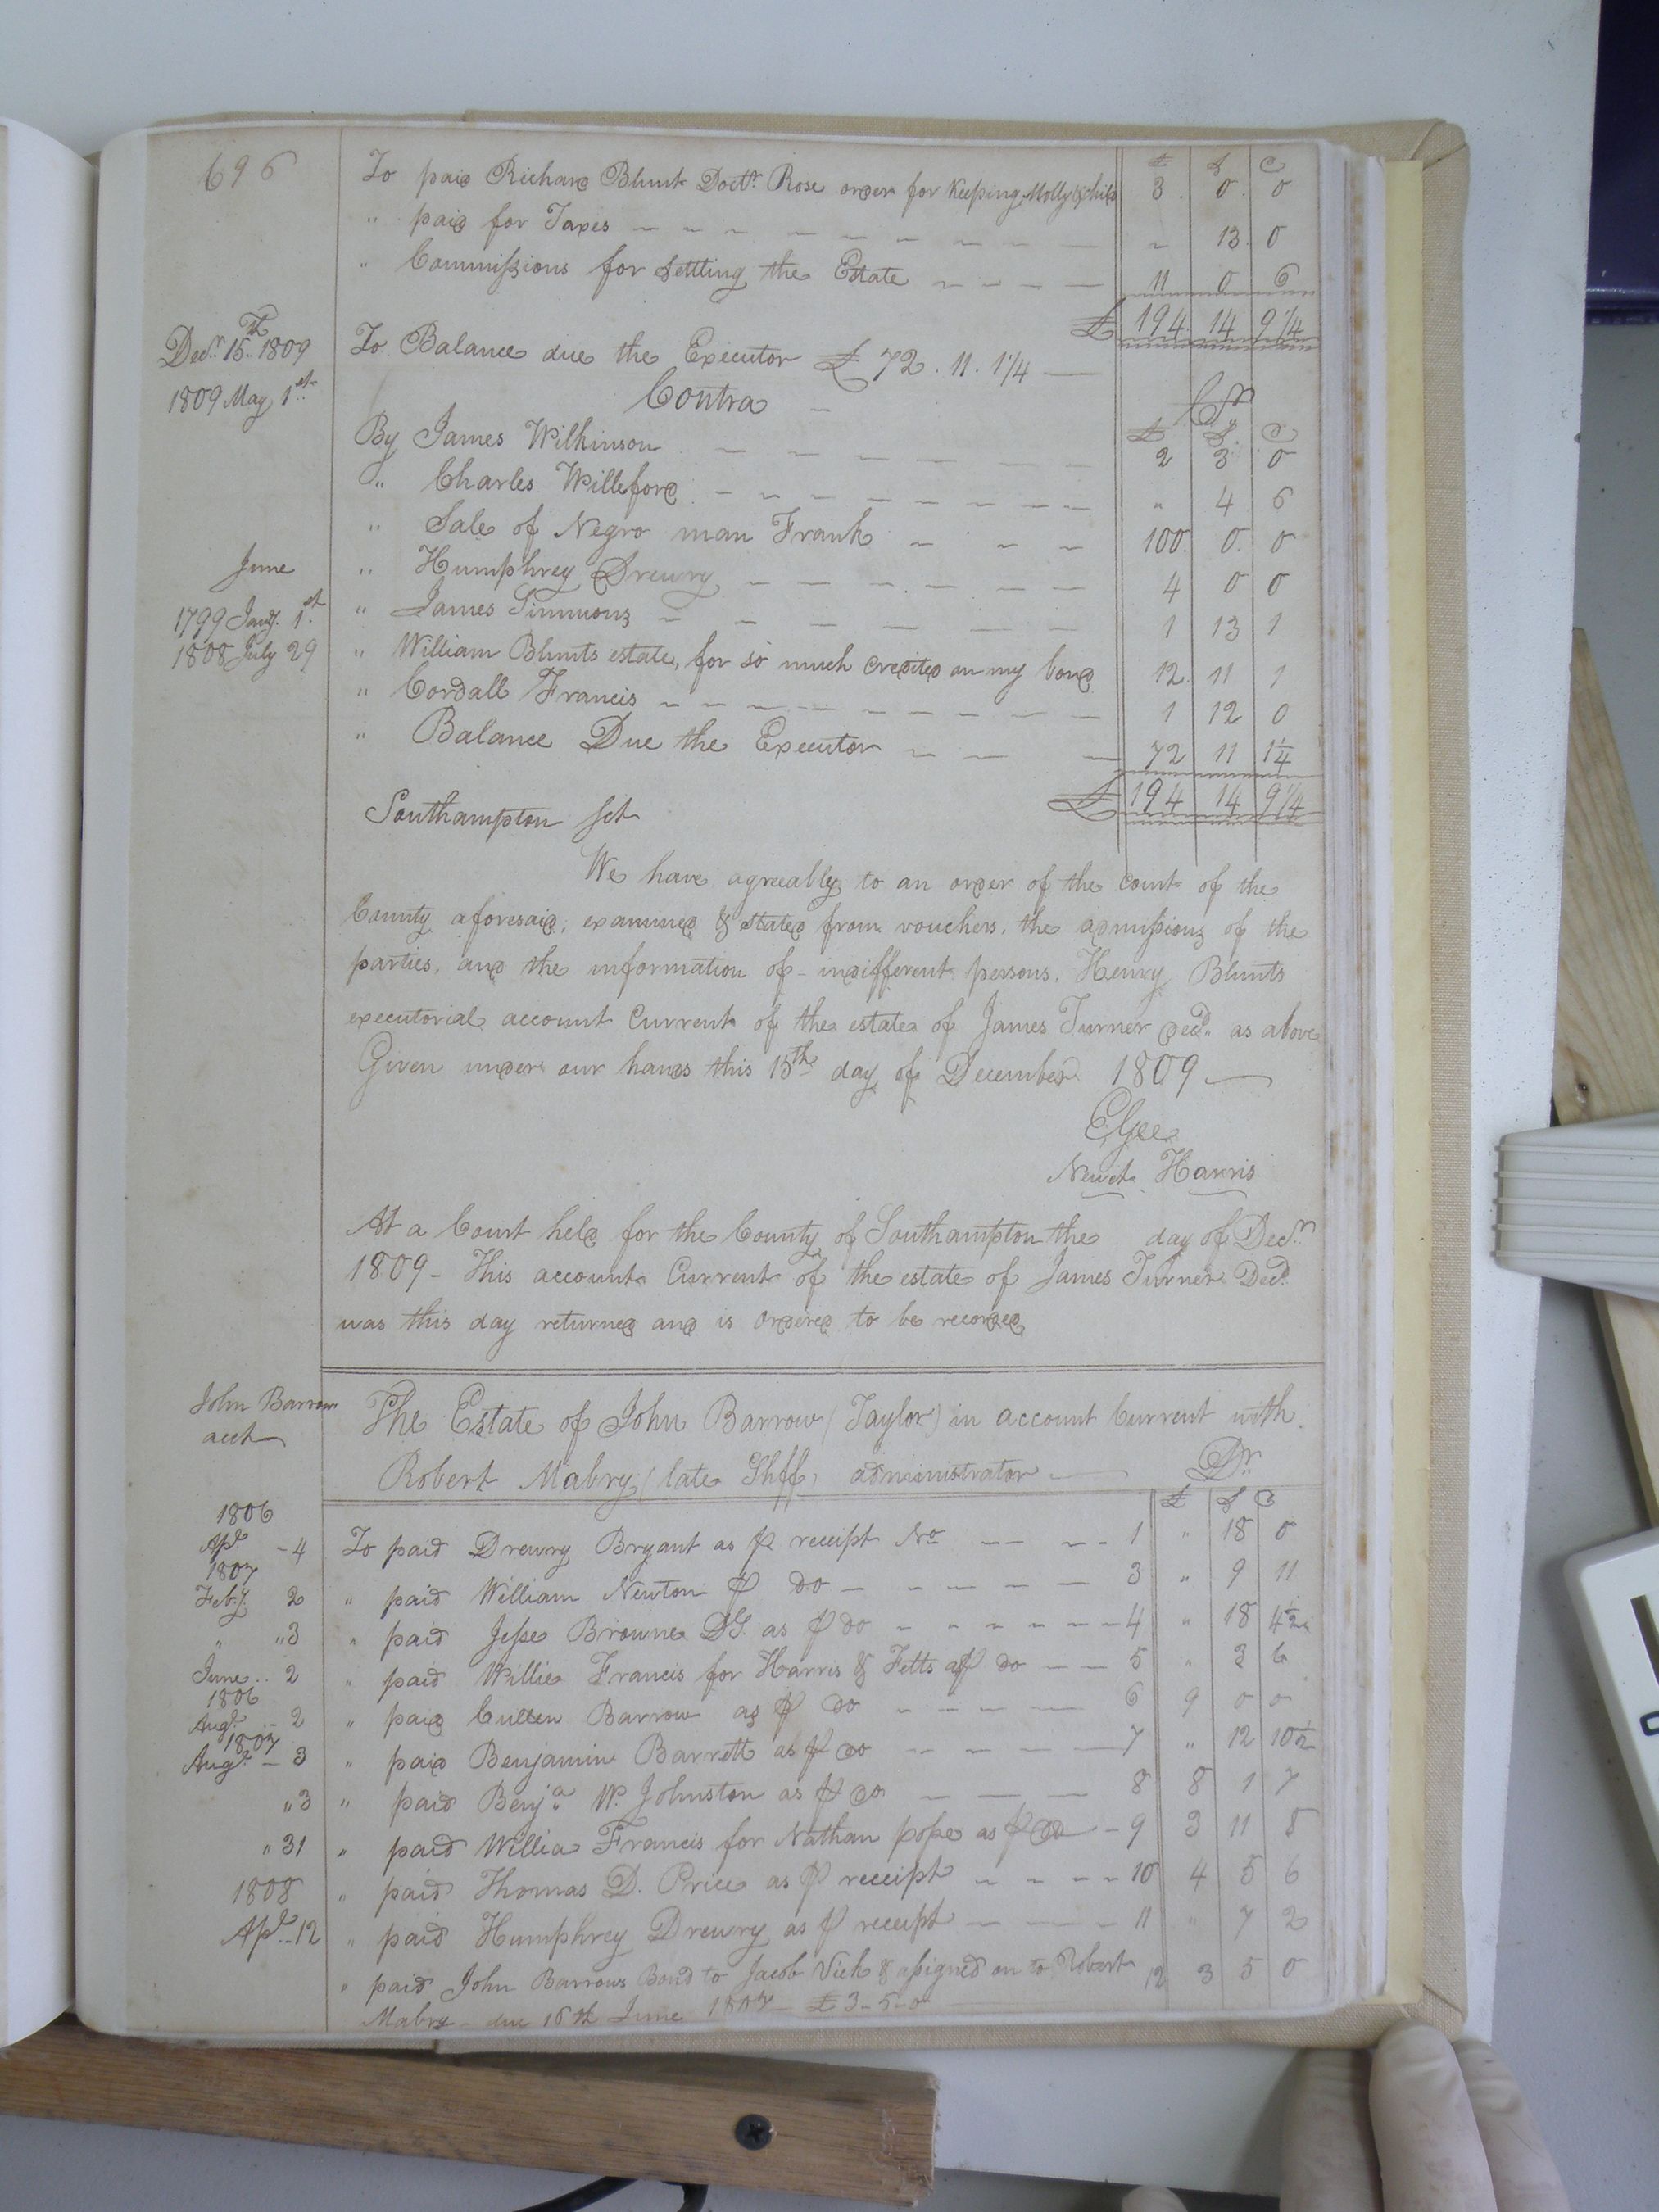 696
£ S D
To paid Richard Blunt Doctr. Rose order for Keeping Molly & child 3. 0. 0
" paid for Taxes " 13. 0
" Commissions for settling the Estate 11 0 6
£ 194 14 9 1/4
Decr. 15th 1809 To Balance due the Executor £ 72. 11. 1 1/4
1809 May 1st. Contra Cr
£ S. D
By James Wilkinson 2 3 0
" Charles Williford " 4 6
" Sale of Negro man Frank 100. 0. 0
June " Humphrey Drewry 4 0 0
1799 Jany. 1st. " James Simmons 1 13 1
1808 July 29 " William Blunts estate, for so much credited on my bond 12. 11 1
" Cordall Francis 1 12 0
" Balance Due the Executor 72 11 1 1/4
£ 194 14 9 1/4
Southampton Sct
We have agreeably to an order of the Court of the
County aforesaid, examined & stated from vouchers, the admissions of the
parties, and the information of indifferent persons, Henry Blunts
executorial account Current of the estate of James Turner decd. as above
Given under our hands this 15th day of December 1809
Newit Harris
At a Court held for the County of Southampton the day of Decr.
1809 - This account Current of the estate of James Turner Decd.
was this day returned and is ordered to be recorded
John Barrow
acct
The Estate of John Barrow (Taylor) in account Current with
Robert Mabry (late Shff) administrator Dr.
£ S D
1806
Apl. - 4 To paid Drewry Bryant as ⅌ receipt No 1 " 18 0
1807
Feby. 2 " paid William Newton ⅌ do 3 " 9 11
" " 3 " paid Jesse Browne DS. as ⅌ do 4 " 18 4 1/2
June .. 2 " paid Willie Francis for Harris & Fitts as ⅌ do 5 " 3 6
1806
Augt. - 2 " paid Cullen Barrow as ⅌ do 6 9 0 0
1807
Augt. - 3 " paid Benjamin Barrett as ⅌ do 7 " 12 10 1/2
" 3 " paid Benja. W. Johnston as ⅌ do 8 8 1 7
" 31 " paid Willie Francis for Nathan pope as ⅌ do - 9 3 11 8
1808 " paid Thomas D. Price as ⅌ receipt 10 4 5 6
Apl. 12 " paid Humphrey Drewry as ⅌ receipt 11 " 7 2
" paid John Barrows Bond to Jacob Vick & assigned on to Robert 12 3 5 0
Mabry - due 16th June 1807 £ 3-5-0